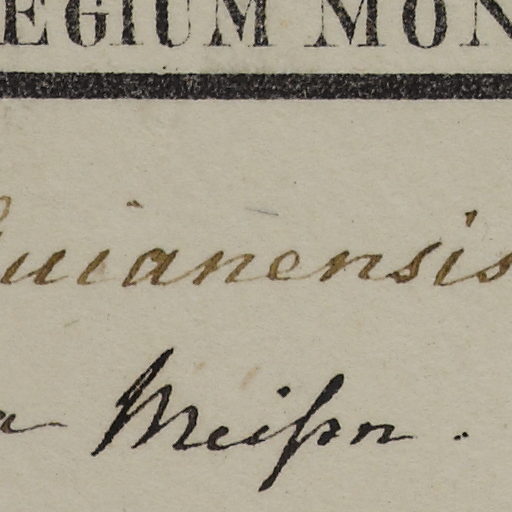 EGIUM MON
uianensis
a Meißn.